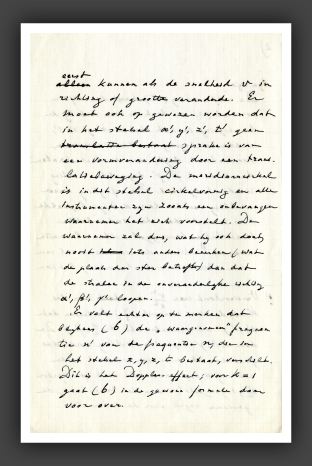 eerst
kunnen als de snelheid v in
richting of grootte veranderde. Er
moet ook op gewezen worden dat
in het stelsel x', y', z', t' geen
sprake is van
een vormverandering door een trans-
latiebeweging. De
is in dit stelsel cirkelvormig en alle
instrumenten zijn zooals een ontvanger
waarnemer het zich voorstelt. De
waarnemer zal dus, wat hij ook doet,
nooit iets anders bemerken (wat
de plaats der ster betreft) dan dat
de stralen in de onveranderlijke richting
α', β', γ' loopen.
Er valt echter op te merken dat
blijkens (6) de "waargenomen" frequen-
tie n' van de frequentie n, die in
het stelsel x, y, z, t bestaat, verschilt.
Dit is het Doppler-effect; voor k = 1
gaat (6) in de gewone formule daar-
voor over.